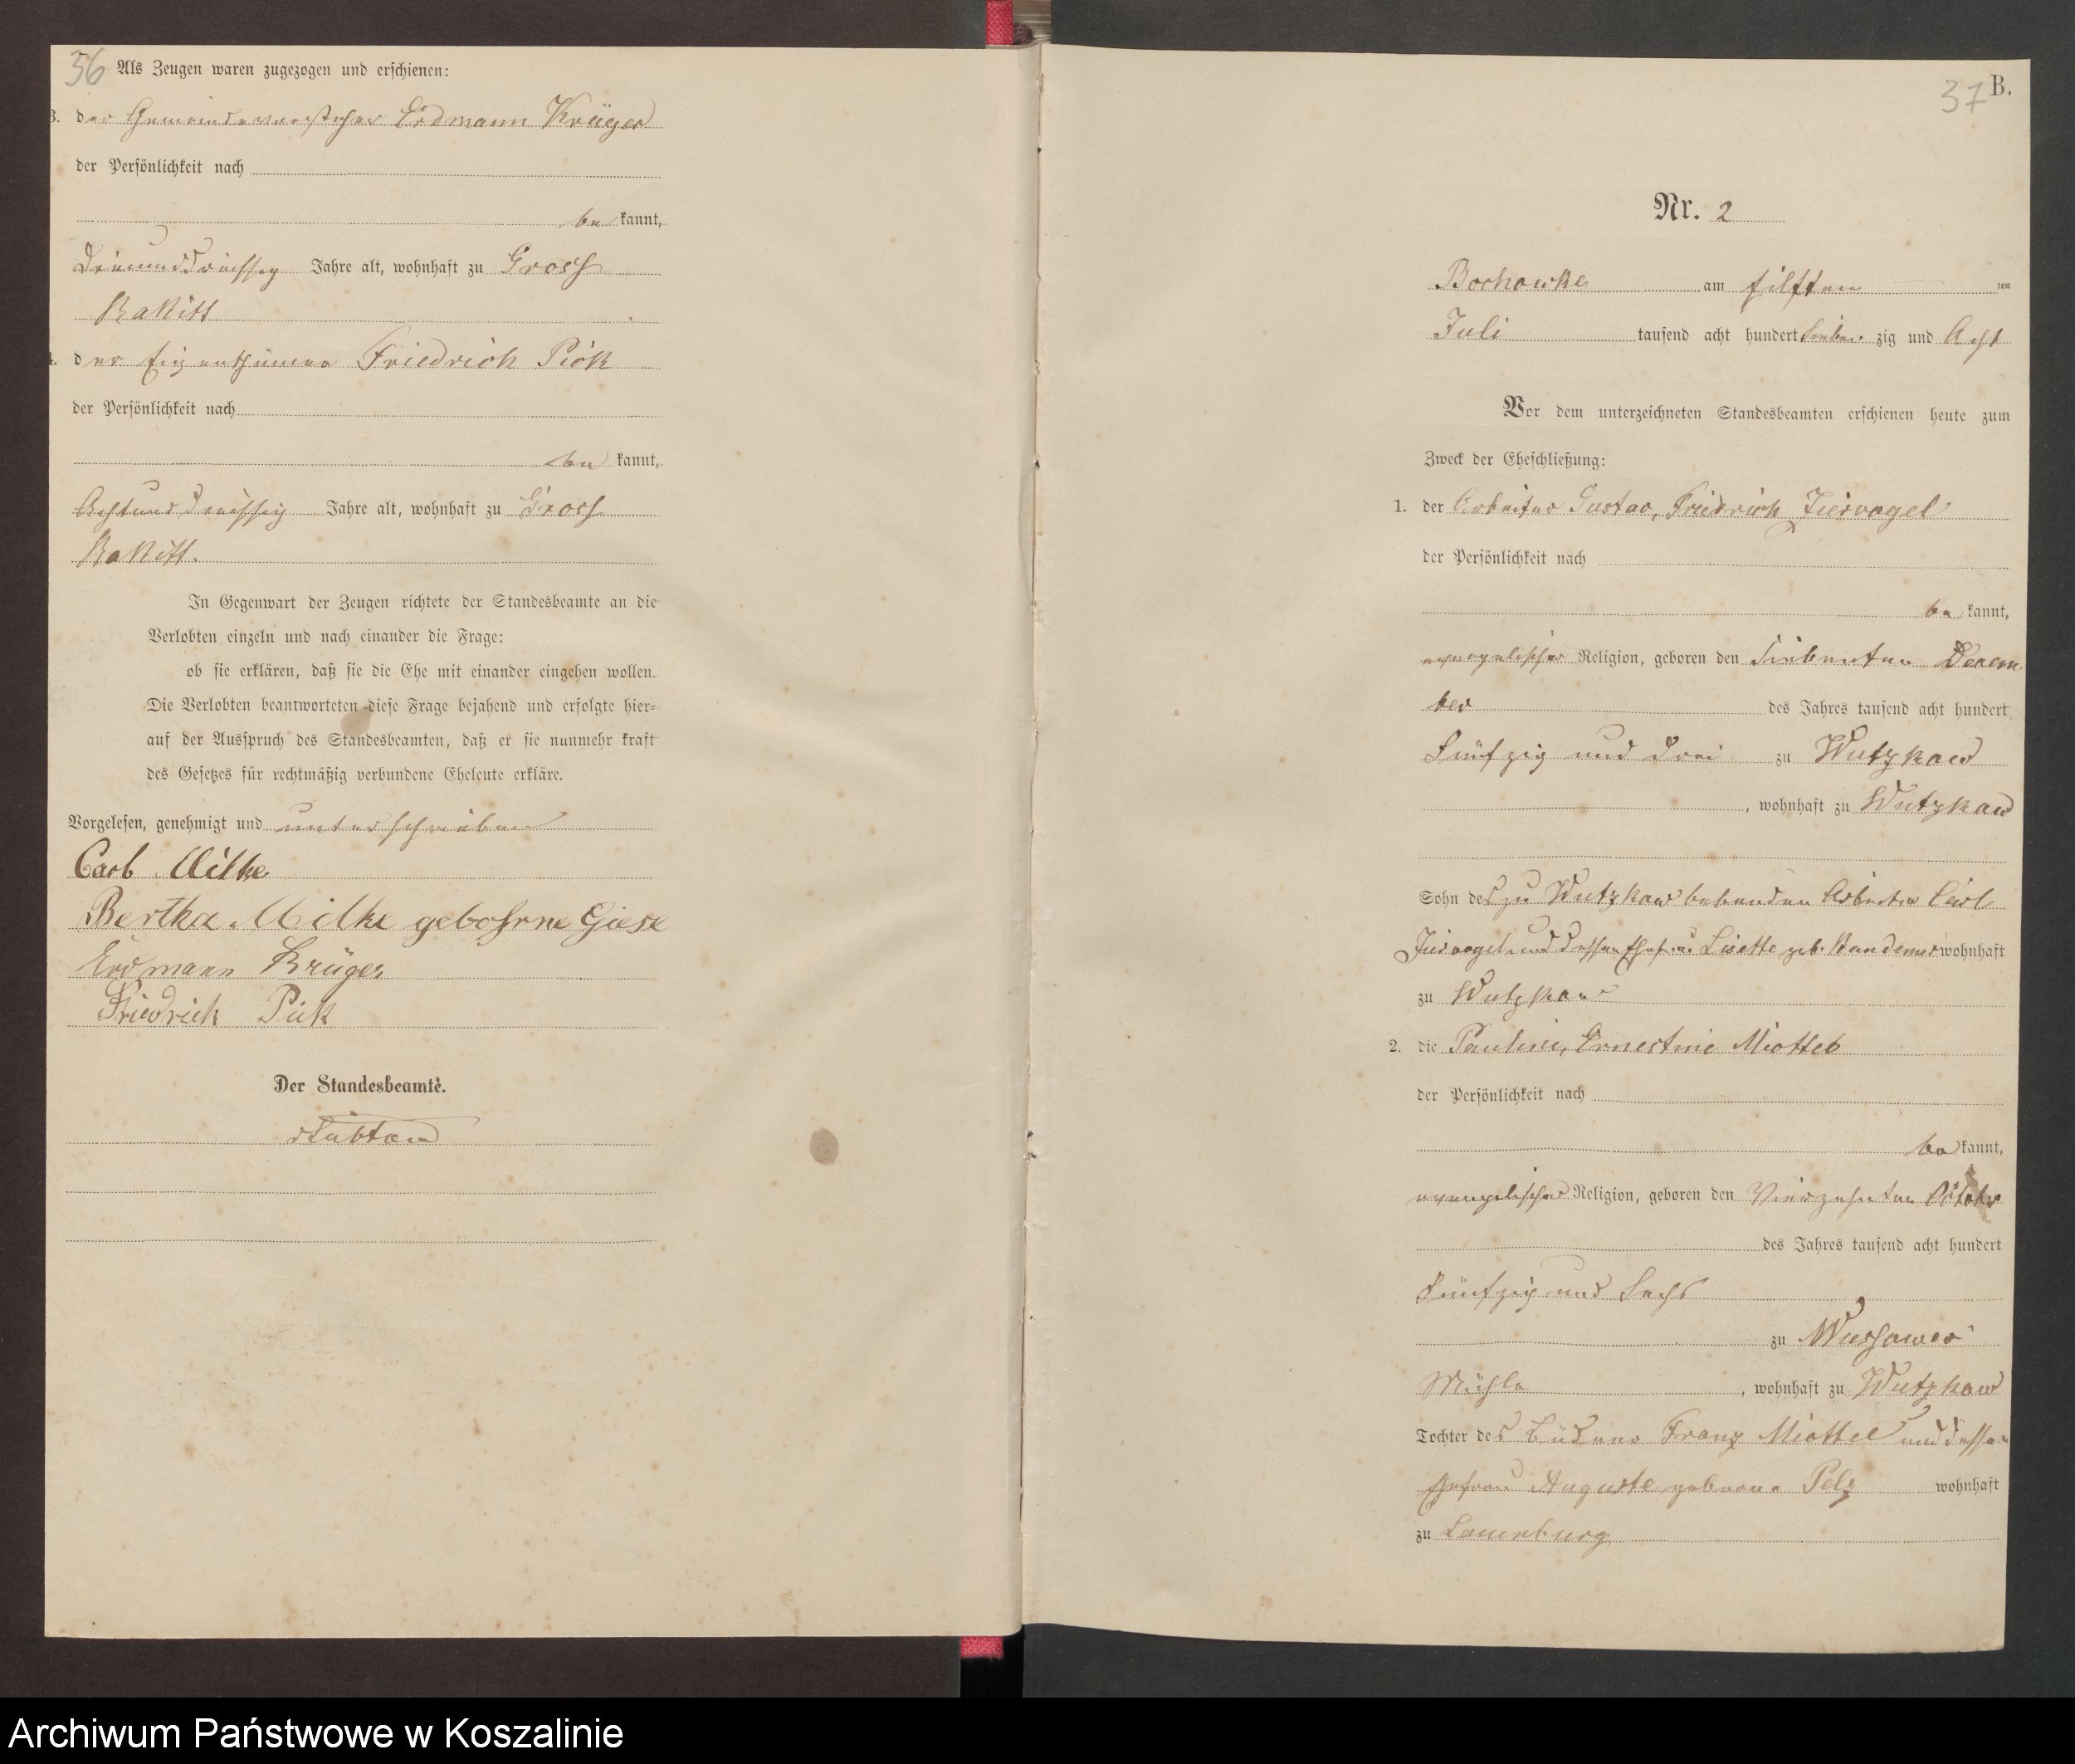 36
Als Zeugen waren zugezogen und erschienen:
3. der Gemeindevorsteher Erdmann Krüger
der Persönlichkeit nach
be kannt,
Dreiunddreissig Jahre alt, wohnhaft zu Gross
Rakitt
4. der Eigenthümer Friedrich Piok
der Persönlichkeit nach
be kannt,
Achtunddreissig Jahre alt, wohnhaft zu Gross
Rakitt.
In Gegenwart der Zeugen richtete der Standesbeamte an die
Verlobten einzeln und nach einander die Frage:
ob sie erklären, daß sie die Ehe mit einander eingehen wollen.
Die Verlobten beantworteten diese Frage bejahend und erfolgte hier-
auf der Ausspruch des Standesbeamten, daß er sie nunmehr kraft
des Gesetzes für rechtmäßig verbundene Eheleute erkläre.
Vorgelesen, genehmigt und unterschrieben
Carl Milke
Bertha Milke gebohrne Giese
Erdmann Krüger
Friedrich Piok
Der Standesbeamte.
37 B.
Nr. 2
Bochowke am eilften ten
Juli tausend acht hundert Sieben zig und Acht
Vor dem unterzeichneten Standesbeamten erschienen heute zum
Zweck der Eheschließung:
1. der Arbeiter Gustav, Friedrich Ziervogel
der Persönlichkeit nach
be kannt,
evangelischer Religion, geboren den Siebenten Dezem
ber des Jahres tausend acht hundert
Fünfzig und drei zu Wutzkow
, wohnhaft zu Wutzkow
Sohn des zu Wutzkow lebenden Arbeiter Carl
Ziervogel und dessen Ehefrau Lisette geb. wohnhaft
zu Wutzkow
2. die Pauline, Ernestine Miottel
der Persönlichkeit nach
be kannt,
evangelischer Religion, geboren den Vierzehnten Oktober
des Jahres tausend acht hundert
Fünfzig und Sechs
zu Wussower
Mühle , wohnhaft zu Wutzkow
Tochter des Büdner Franz Miottel und dessen
Ehefrau Auguste geborene Pelz wohnhaft
zu Lauenburg
Archiwum Państwowe w Koszalinie